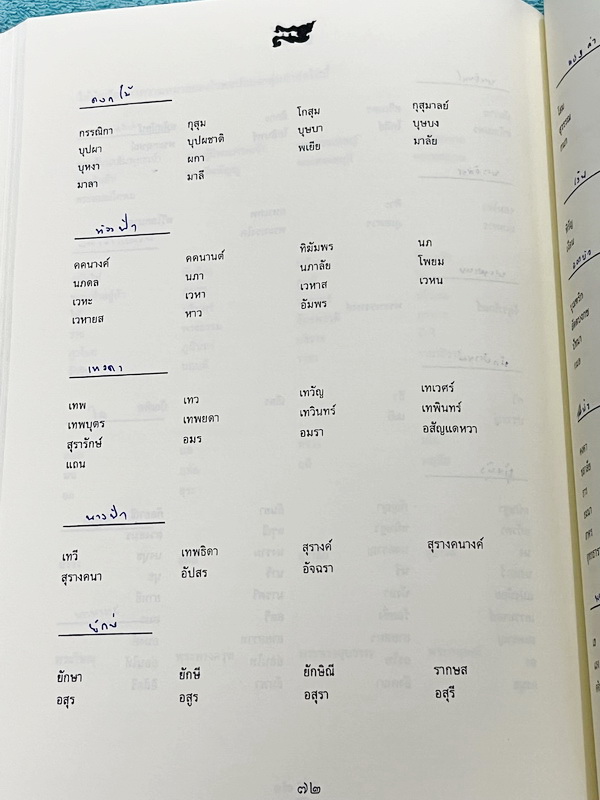 ดอกไม้
กรรณิกา กุสุม โกสุม กุสุมาลย์
บุปผา บุปผชาติ บุษบา บุษบง
บุหงา ผกา พเยีย มาลัย
มาลา มาลี
ท้องฟ้า
คคนางค์ คคนานต์ ทิฆัมพร นภ
นภดล นภา นภาลัย โพยม
เวหะ เวหา เวหาส เวหน
เวหายส หาว อัมพร
เทวดา
เทพ เทว เทวัญ เทเวศร์
เทพบุตร เทพยดา เทวินทร์ เทพินทร์
สุรารักษ์ อมร อมรา อสัญแดหวา
แถน
นางฟ้า
เทวี เทพธิดา สุรางค์ สุรางคนางค์
สุรางคนา อัปสร อัจฉรา
ยักษ์
ยักษา ยักษี ยักษิณี รากษส
อสุร อสูร อสุรา อสุรี
๗๒